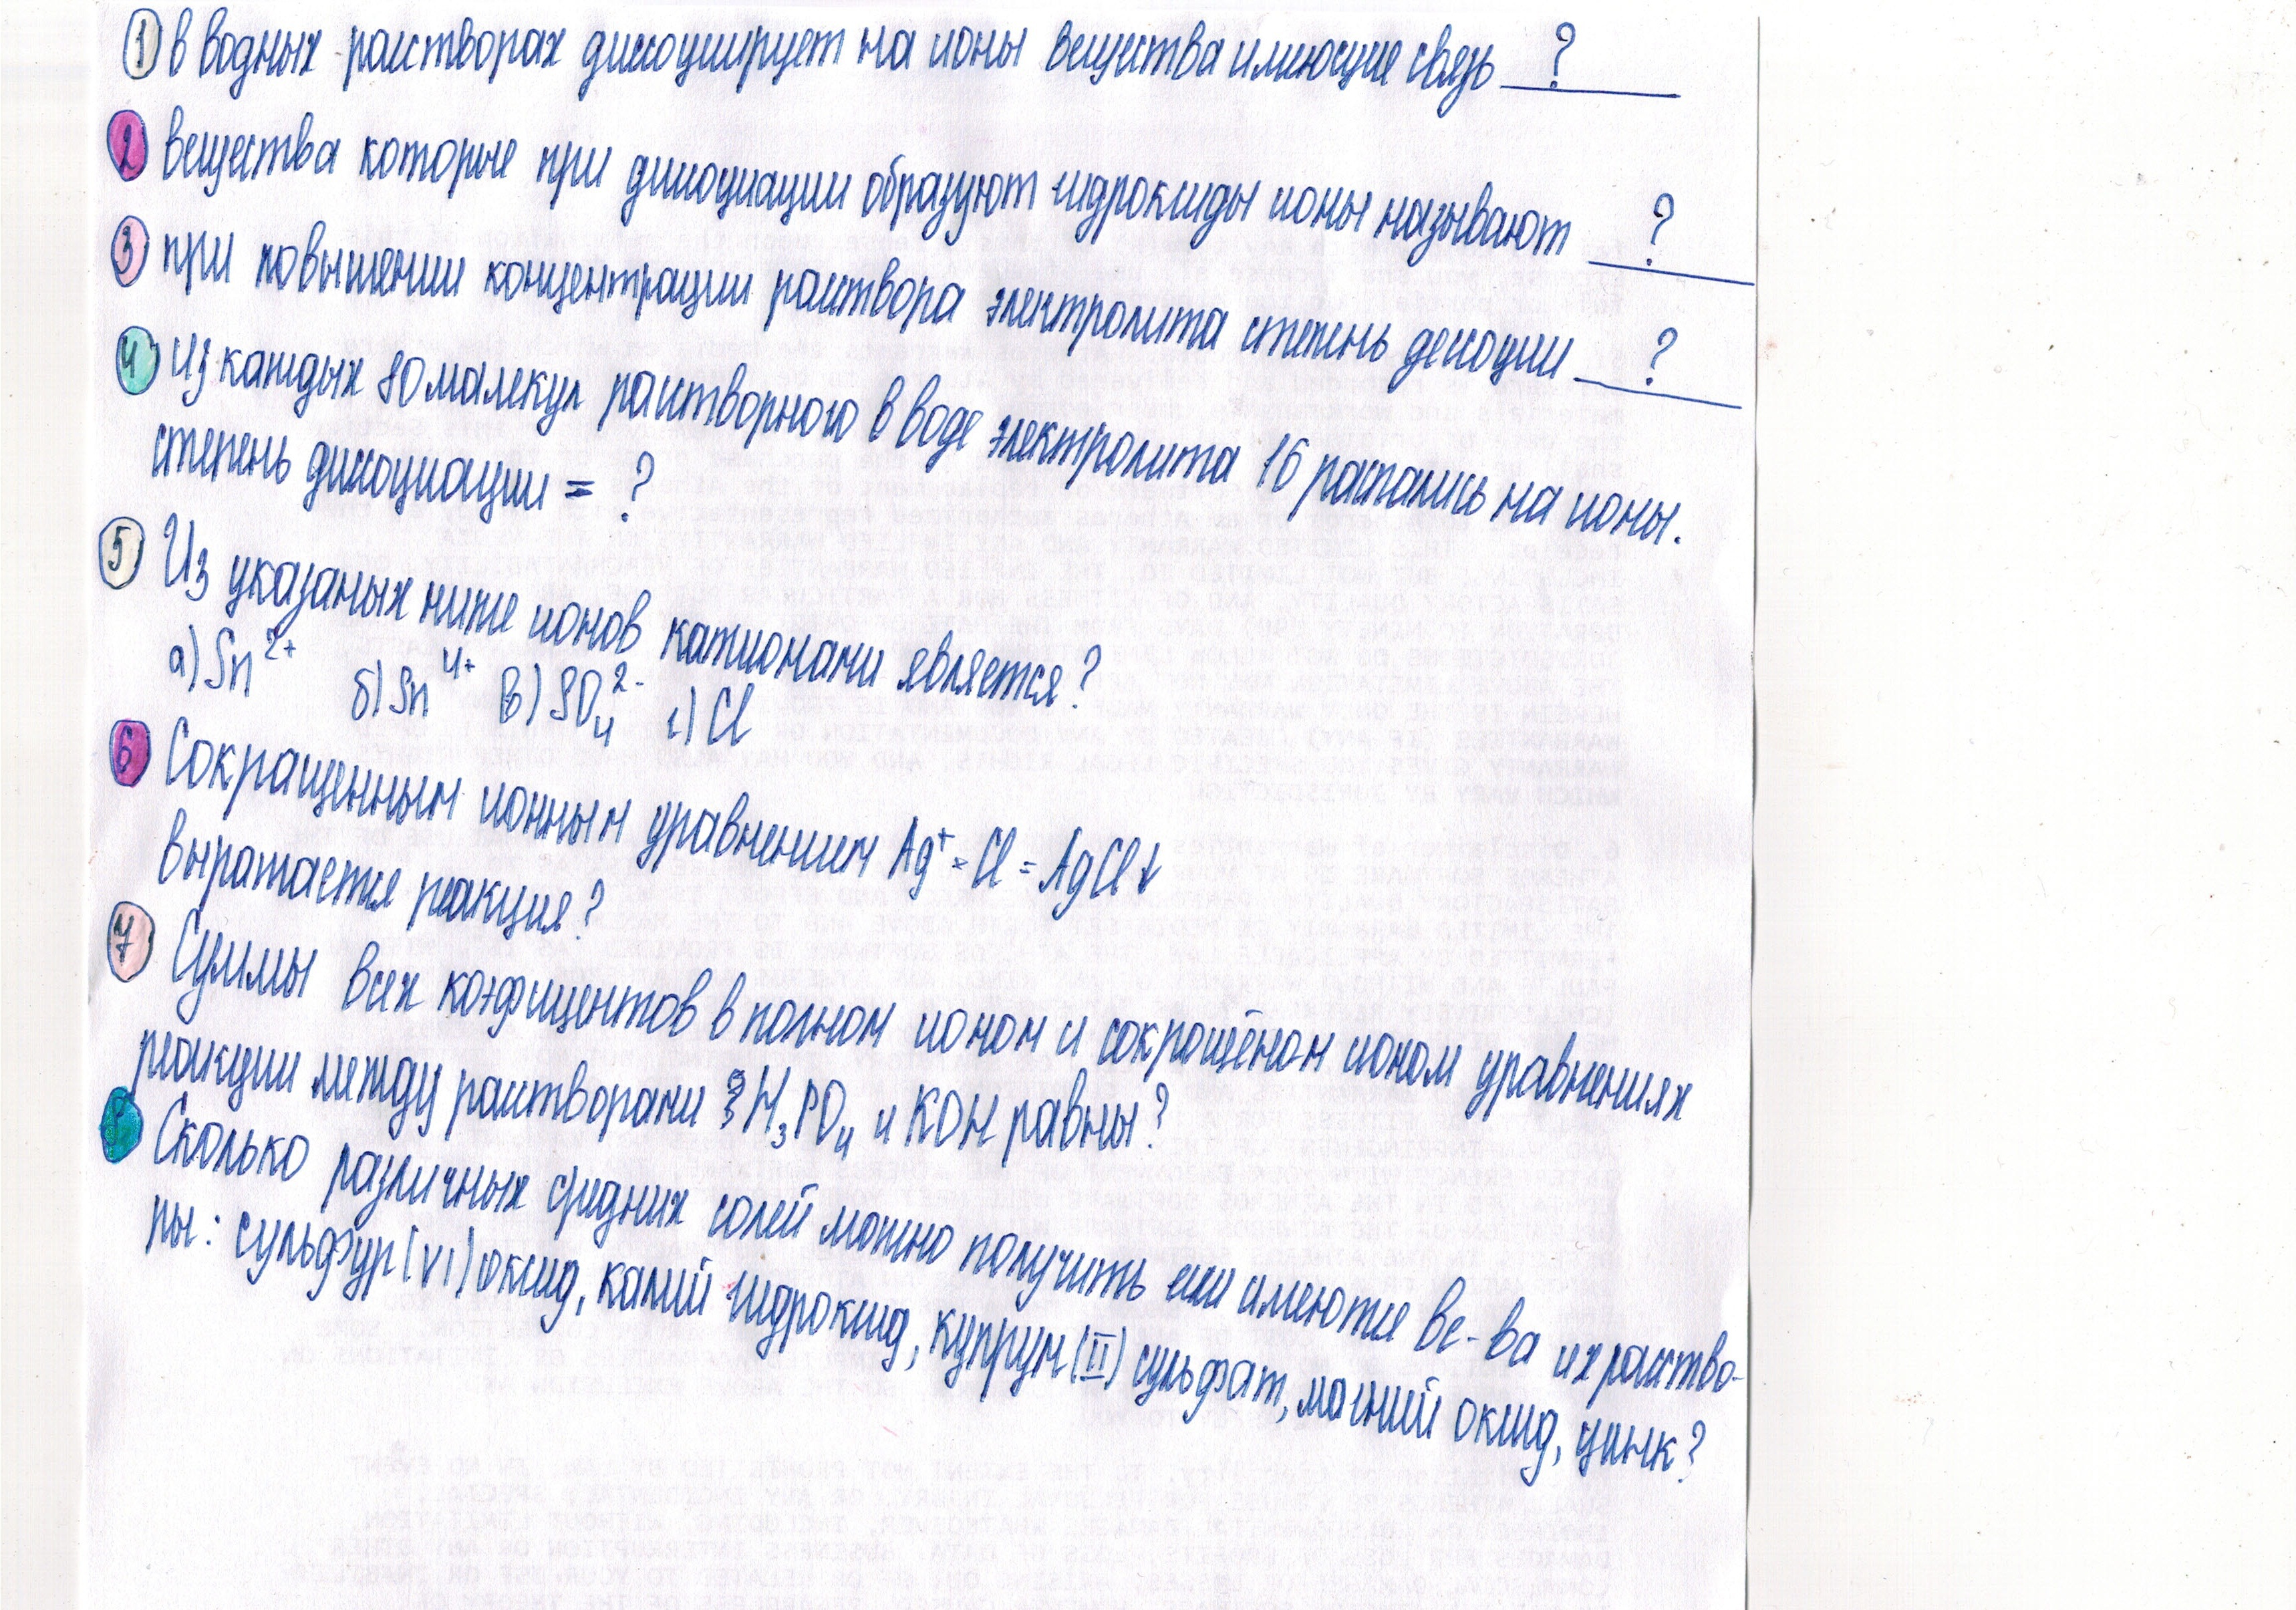 1 в водных растворах диссоциирует на ионы вещества имеющие связь ?
2 вещества которые при диссоциации образуют гидроксиды ионы называют ?
3 при повышении концентрации раствора электролита степень десоции ?
4 Из каждых 80 малекул растворного в воде электролита 16 распались на ионы.
степень диссоциации = ?
5 Из указаных ниже ионов катионами является?
а) Sn²⁺ б) Sn⁴⁺ в) SO₄²⁻ г) Cl
6 Сокращенным ионным уравнением Ag⁺ + Cl = AgCl↓
выражается реакция?
7 Суммы всех коэфицентов в полном ионом и сокрощёном ионом уравнениях
реакции между растворами H₃PO₄ и KOH равны?
8 Сколько различных средних солей можно получить если имеются ве-ва их раство-
ры: сульфур (VI) оксид, калий гидроксид, купрум (II) сульфат, магний оксид, цинк?